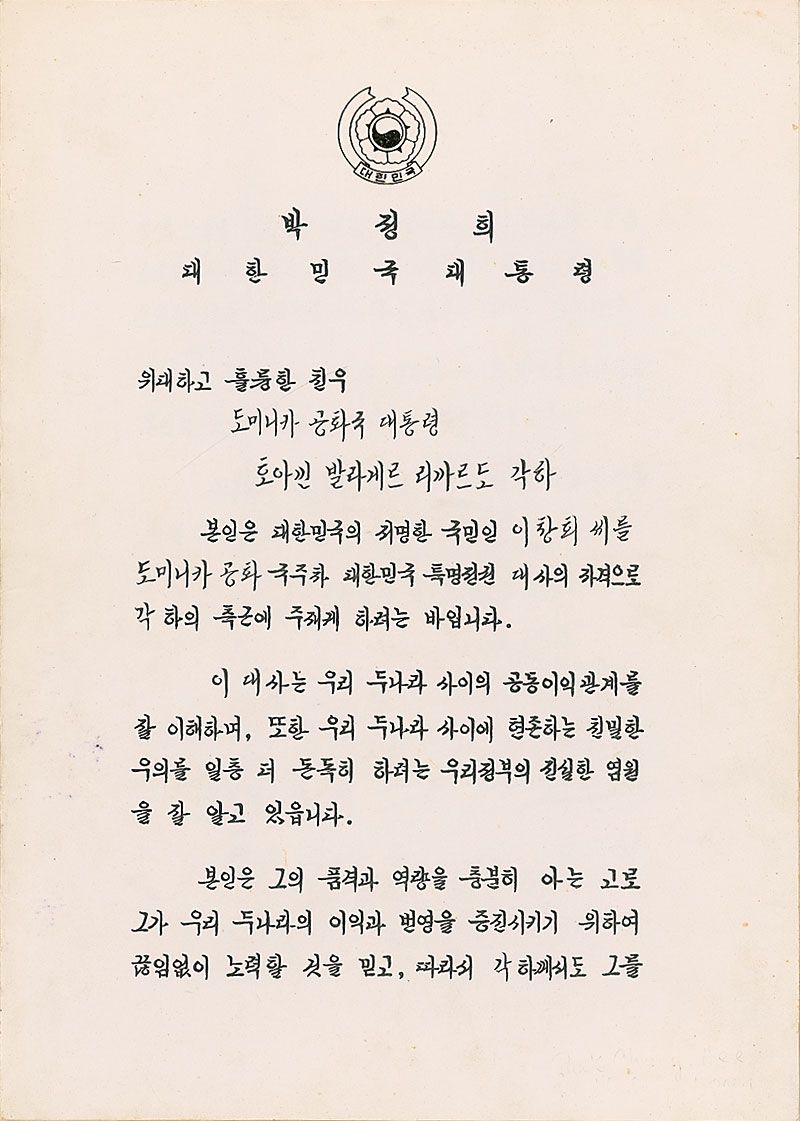 대한민국
박 정 희
대 한 민 국 대 통 령
위대하고 훌륭한 친우
도미니카 공화국 대통령
호아낀 발라게르 리까르도 각하
본인은 대한민국의 저명한 국민인 이창희 씨를
도미니카 공화 국주차 대한민국 특명전권 대사의 자격으로
각 하의 측근에 주재케 하려는 바입니다.
이 대사는 우리 두나라 사이의 공동이익관계를
잘 이해하며, 또한 우리 두나라 사이에 현존하는 친밀한
우의를 일층 더 돈독히 하려는 우리정부의 진실한 염원
을 잘 알고 있읍니다.
본인은 그의 품격과 역량을 충분히 아는 고로
그가 우리 두나라의 이익과 번영을 증진시키기 위하여
끊임없이 노력할 것을 믿고, 따라서 각하께서도 그를